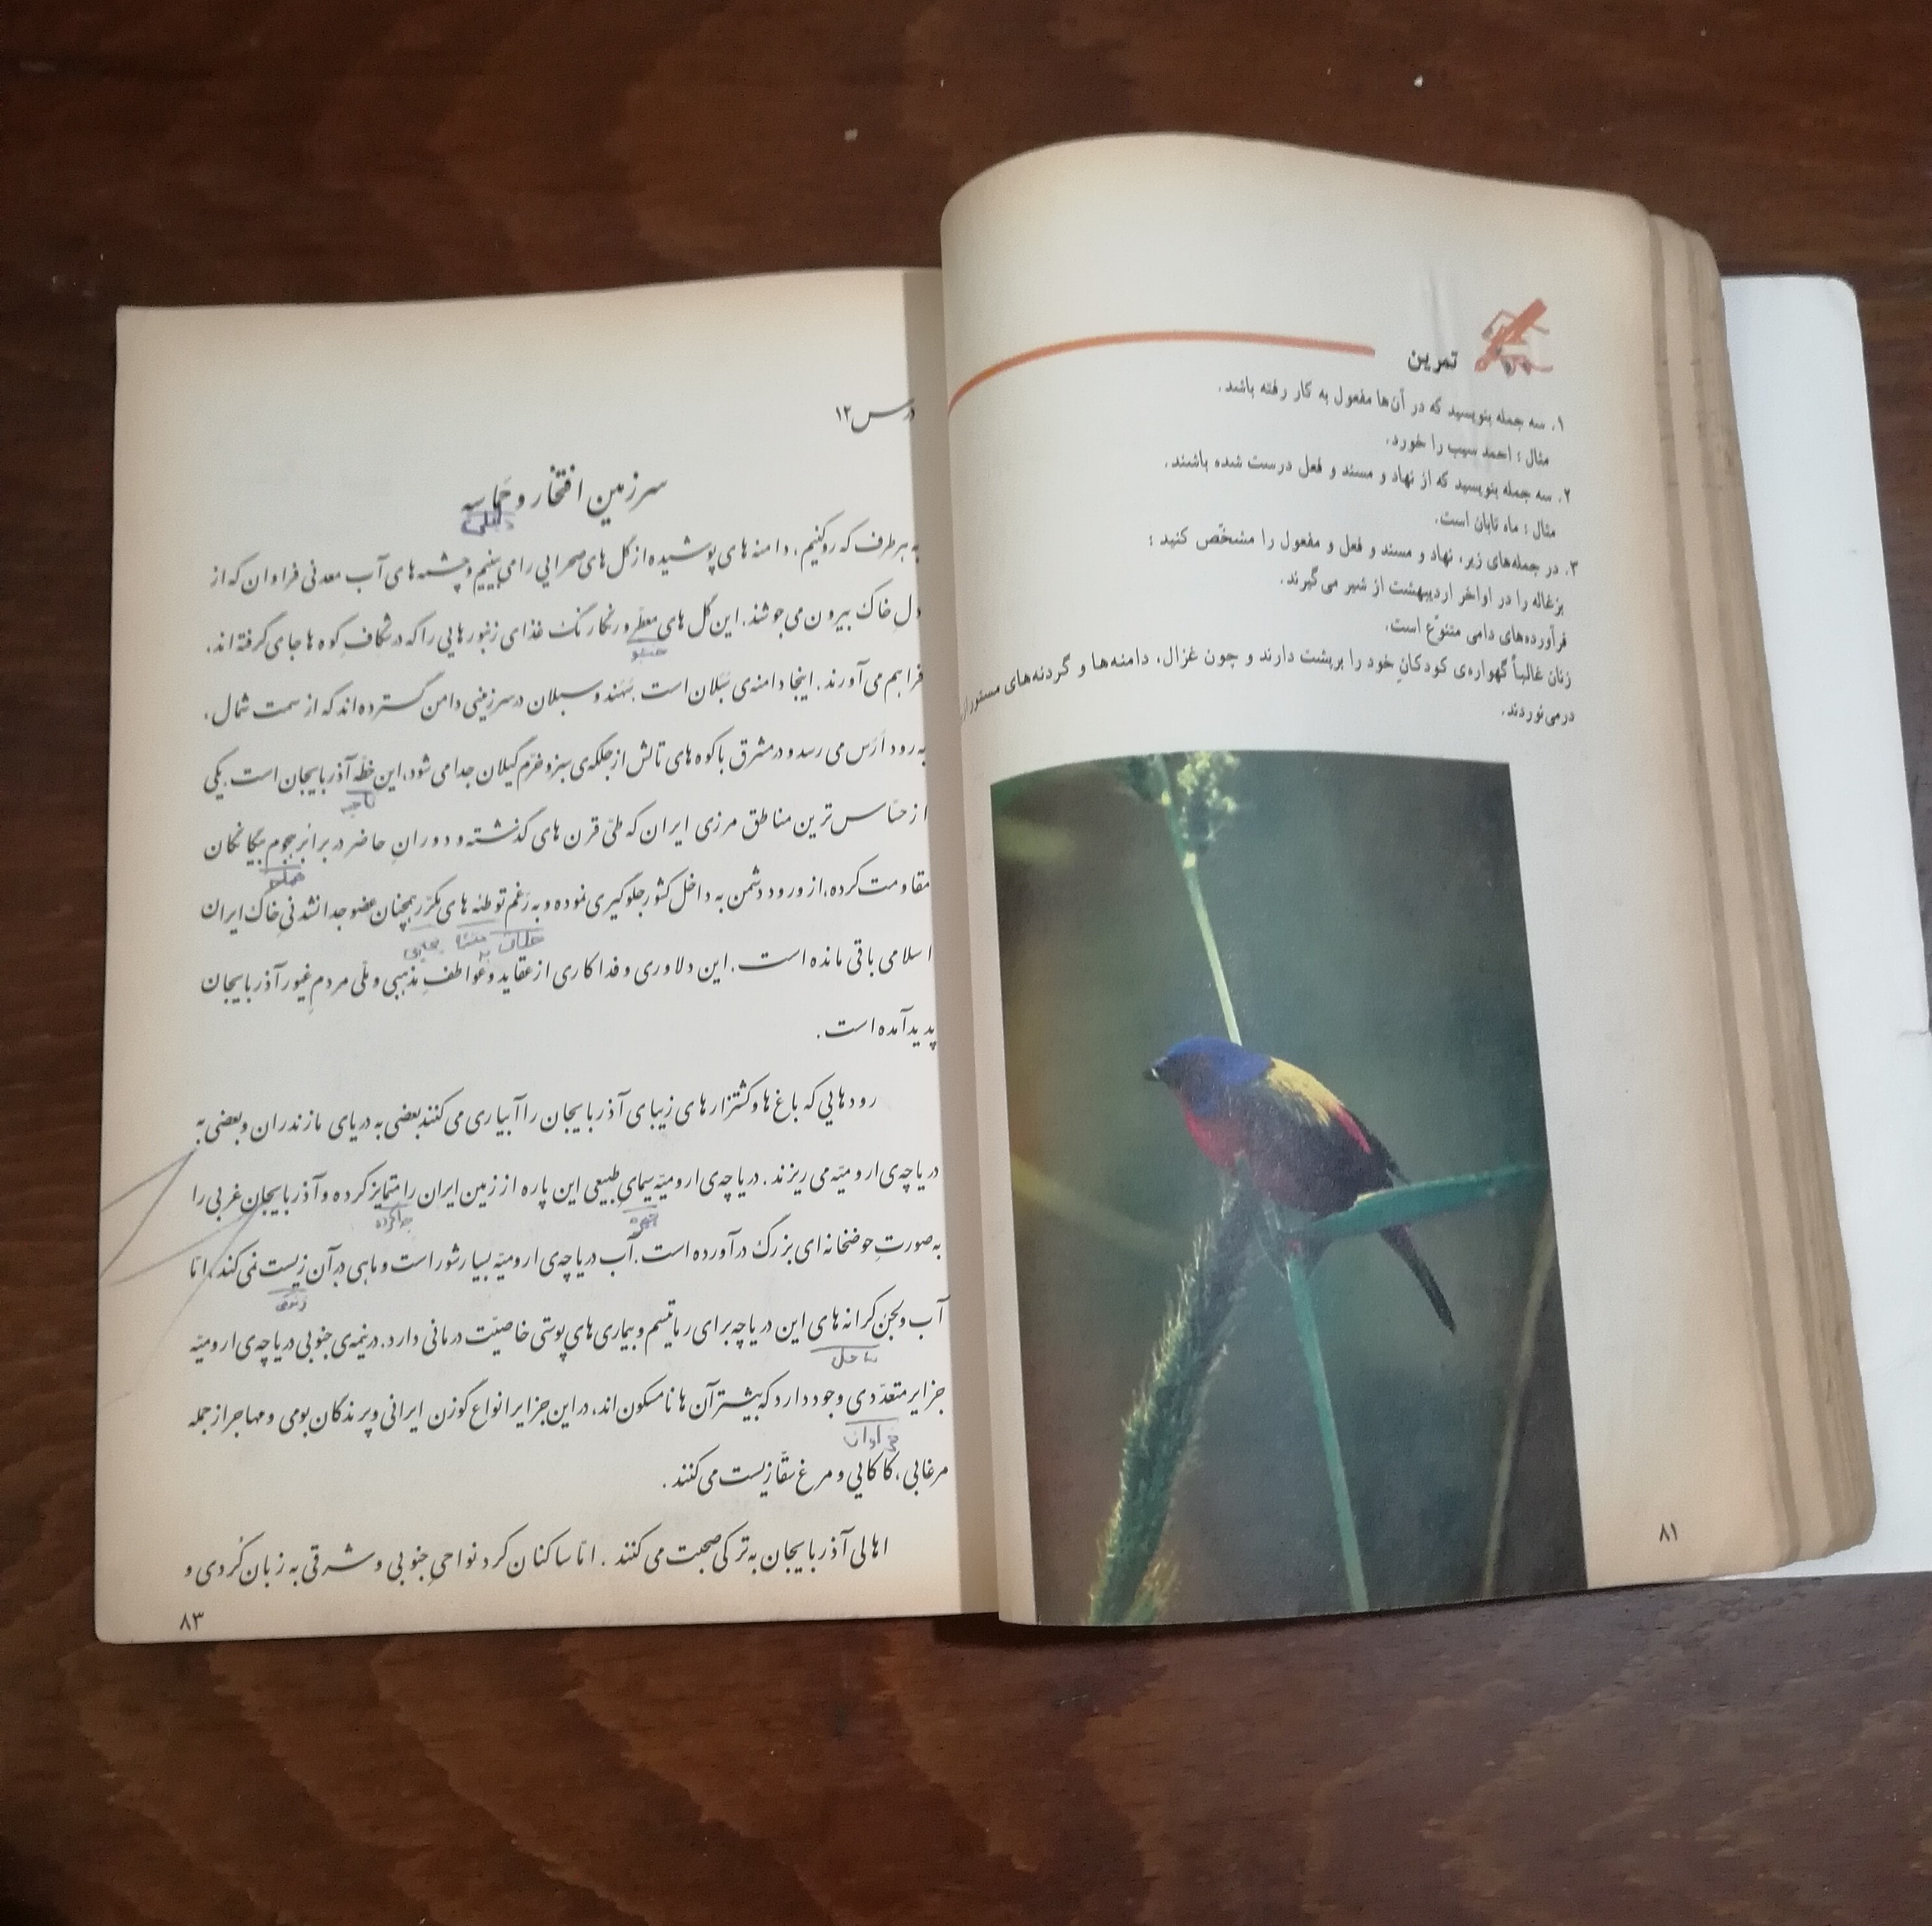 تمرین
۱. سه جمله بنویسید که در آن‌ها مفعول به کار رفته باشد.
مثال : احمد سیب را خورد.
۲. سه جمله بنویسید که از نهاد و مسند و فعل درست شده باشند.
مثال : ماه تابان است.
۳. در جمله‌های زیر، نهاد و مسند و فعل و مفعول را مشخّص کنید :
بزغاله را در اواخر اردیبهشت از شیر می‌گیرند.
فرآورده‌های دامی متنوّع است.
زنان غالباً گهواره‌ی کودکانِ خود را برپشت دارند و چون غزال، دامنه‌ها و گردنه‌های مستور از
درمی‌نوردند.
۸۱
درس ۱۲
سرزمین افتخار و حَماسه
دلیلی
به هر طرف که رو کنیم، دامنه های پوشیده از گل های صحرایی را می بینیم و چشمه های آب معدنی فراوان که از
دلِ خاک بیرون می جوشند. این گل های معطّر و رنگارنگ غذای زنبورهایی را که در شکافِ کوه ها جای گرفته اند،
خشبو
فراهم می آورند. اینجا دامنه ی سَبَلان است. سَهَند و سبلان در سرزمینی دامن گسترده اند که از سمت شمال،
به رود اَرَس می رسد و در مشرق با کوه های تالش از جلگه ی سبز و خرّم گیلان جدا می شود، این خطّه آذربایجان است. یکی
ناحیه
از حسّاس ترین مناطق مرزی ایران که طیّ قرن های گذشته و دورانِ حاضر در برابرِ هجوم بیگانگان
حمله
مقاومت کرده، از ورود دشمن به داخل کشور جلوگیری نموده و به رَغم توطئه های مکرّر همچنان عضو جدا نشدنیِ خاک ایران
خلاف
اسلامی باقی مانده است. این دلاوری و فداکاری از عقاید و عواطفِ مذهبی و ملّی مردمِ غیور آذربایجان
پدید آمده است.
رودهایی که باغ ها و کشتزارهای زیبای آذربایجان را آبیاری می کنند بعضی به دریای مازندران و بعضی به
دریاچه ی ارومیّه می ریزند. دریاچه ی ارومیّه سیمایِ طبیعی این پاره از زمین ایران را متمایز کرده و آذربایجان غربی را
چهره جدا کرده
به صورتِ حوضخانه ای بزرگ درآورده است. آب دریاچه ی ارومیّه بسیار شور است و ماهی در آن زیست نمی کند، امّا
زندگی
آب و لجن کرانه های این دریاچه برای رماتیسم و بیماری های پوستی خاصیّت درمانی دارد. در نیمه ی جنوبی دریاچه ی ارومیّه
ساحل
جزایر متعدّدی وجود دارد که بیشتر آن ها نامسکون اند، در این جزایر انواع گوزن ایرانی و پرندگان بومی و مهاجر از جمله
فراوان
مرغابی، کاکایی و مرغ سقّا زیست می کنند.
اهالی آذربایجان به ترکی صحبت می کنند. امّا ساکنان کرد نواحیِ جنوبی و شرقی به زبان کُردی و
۸۳